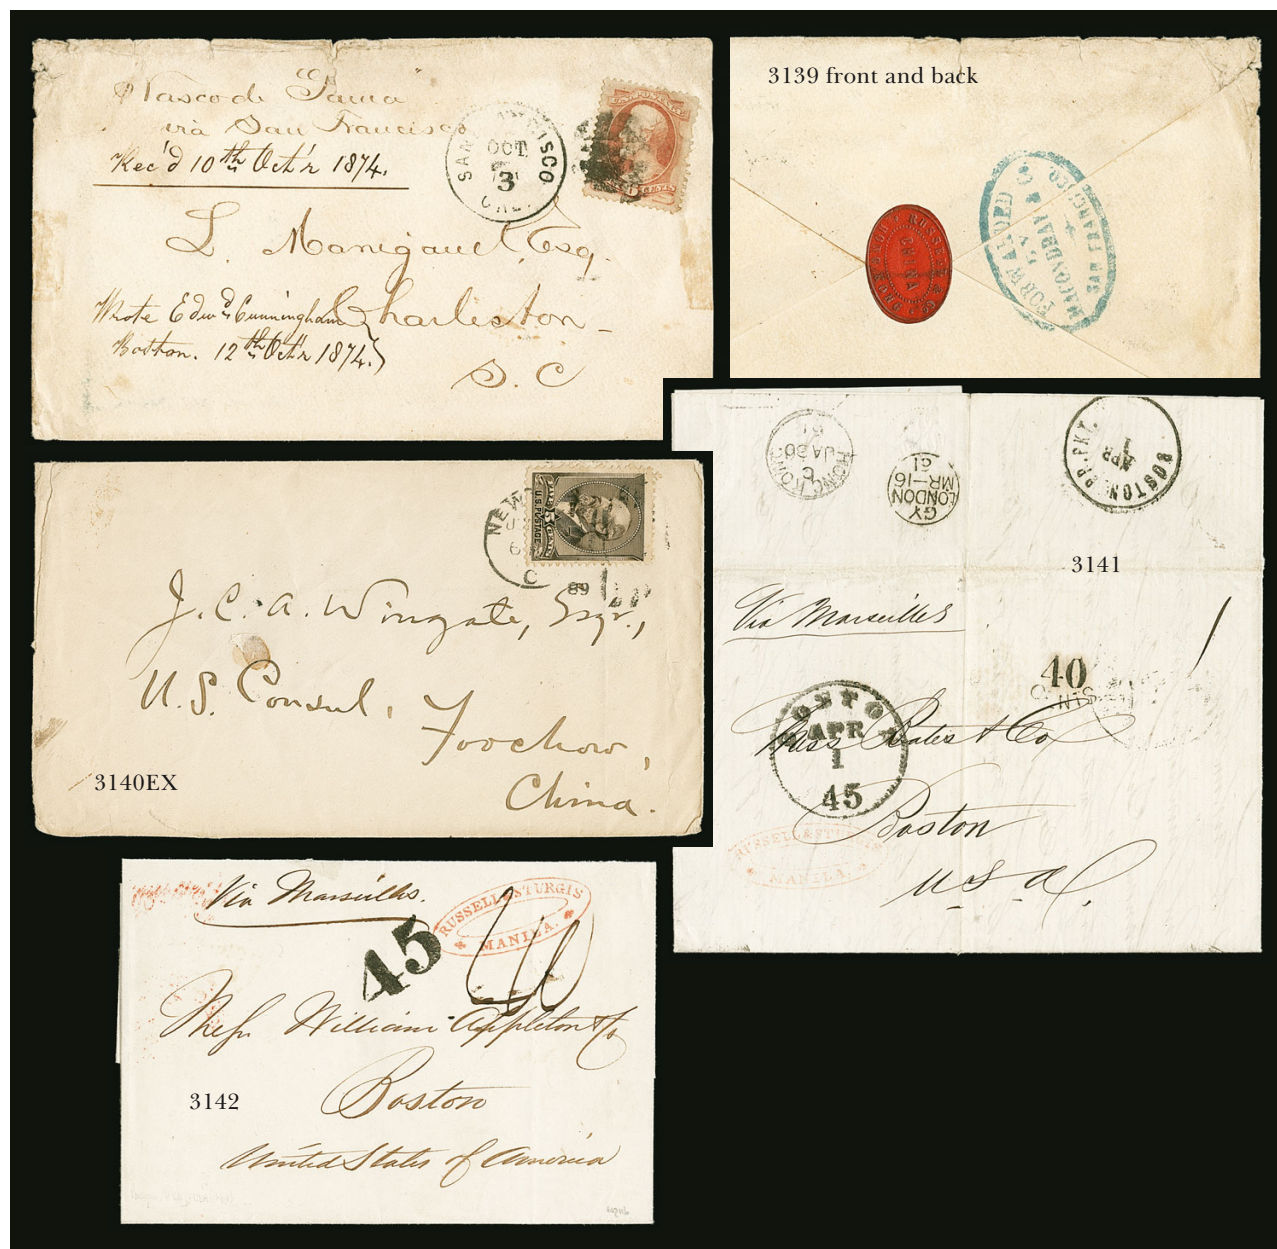 Vasco de Gama
via San Francisco
Rec'd 10th Oct'r 1874.
SAN FRANCISCO
OCT
3
CAL.
U.S. POSTAGE
L. Manigault, Esq.
Charleston
S. C
Wrote Edwd Cunningham
Boston. 12th Oct'r 1874.
3139 front and back
RUSSELL & CO.
CHINA
FORWARDED
BY
MACONDRAY & CO
SAN FRANCISCO
NEW
89
U.S. POSTAGE
J. C. A. Wingate, Esqr.,
U. S. Consul,
Foochow,
China.
3140EX
HONG KONG
C
JA 30
61
GY
LONDON
MR-16
61
BOSTON BR. PKT.
APR
1
3141
Via Marseilles
40
CENTS
BOSTON
APR
1
45
Mess Bates & Co
Boston
U S A
RUSSELL & STURGIS
MANILA.
Via Marseilles.
RUSSELL & STURGIS
MANILA.
45
40
Messr. William Appleton & Co
Boston
United States of America
3142